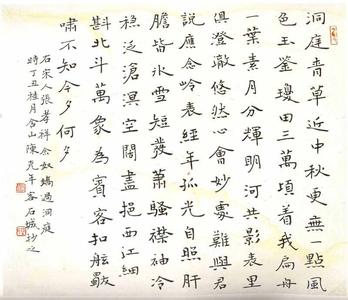 洞庭青草近中秋更無一點風
色玉鑒瓊田三萬頃着我扁舟
一葉素月分輝明河共影表里
俱澄澈悠然心會妙處難與君
說應念岭表經年孤光自照肝
膽皆冰雪短發蕭騷襟袖冷
穩泛滄溟空闊盡挹西江細
斟北斗萬象為賓客扣舷獨
嘯不知今夕何夕
右宋人張孝祥念奴嬌過洞庭
時丁丑桂月含山陳克年客石城抄之